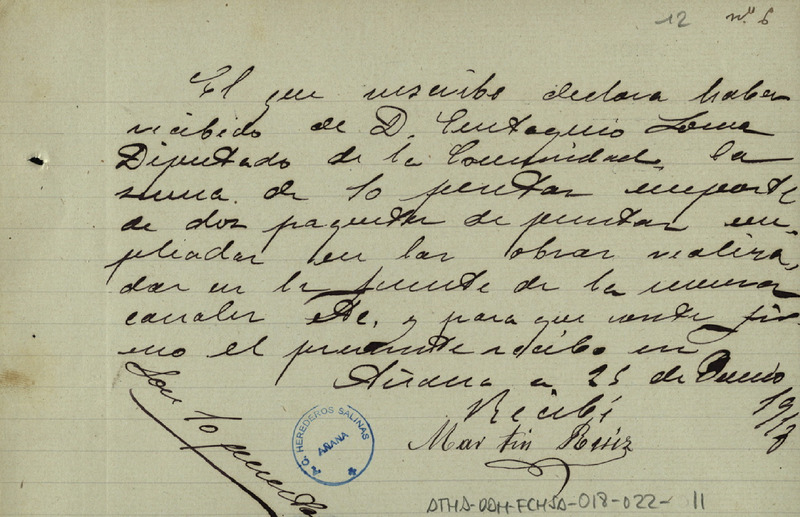 12 nº 6
El que suscribe declara haber
recibido de D. Eustaquio Loma
Diputado de la Comunidad, la
suma de 10 pesetas importe
de dos paquetes de puntas em-
pliadas en las obras realiza-
das en la fuente de la nueva
canales etc, y para que conste fir-
mo el presente recibo en
Añana a 25 de Junio
Recibí
Martin
Son 10 pesetas
C. HEREDEROS SALINAS
AÑANA
ATHA-DAH-FCHSA-018-022-11